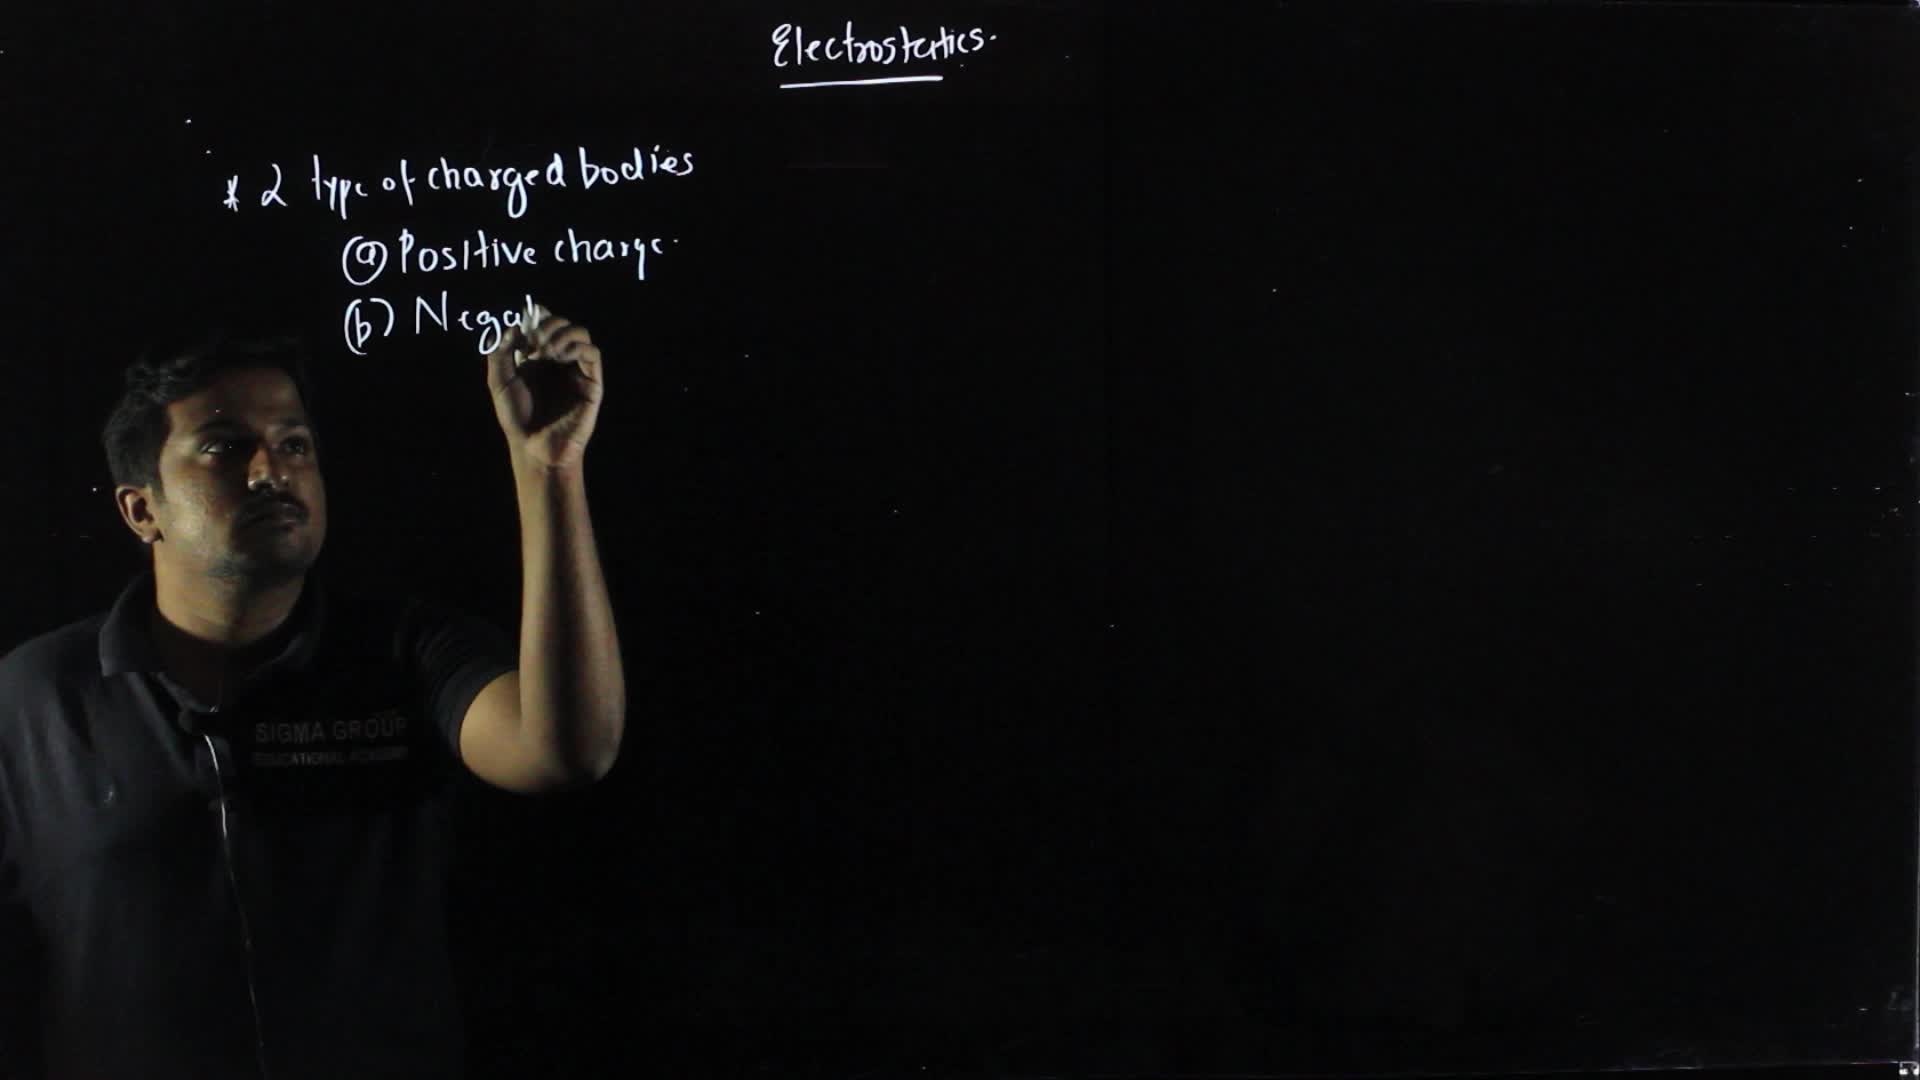 Electrostatics.
* 2 type of charged bodies
(a) Positive charge.
(b) Negat
SIGMA GROUP
EDUCATIONAL ACADEMY